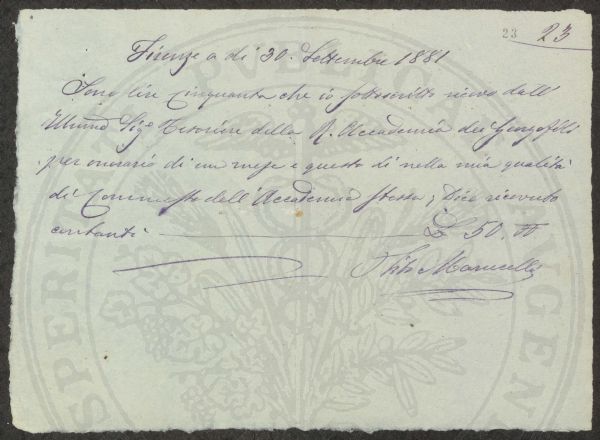 23 23
Firenze a dì 30. Settembre 1881
Sono lire Cinquanta che io sottoscritto ricevo dall'
Illmo Sigr Tesoriere della R. Accademia dei Georgofili
per onorario di un mese e questo di nella mia qualità
di Commesso dell'Accademia stessa, Dico ricevuto
contanti £ 50. 00
Marucelli